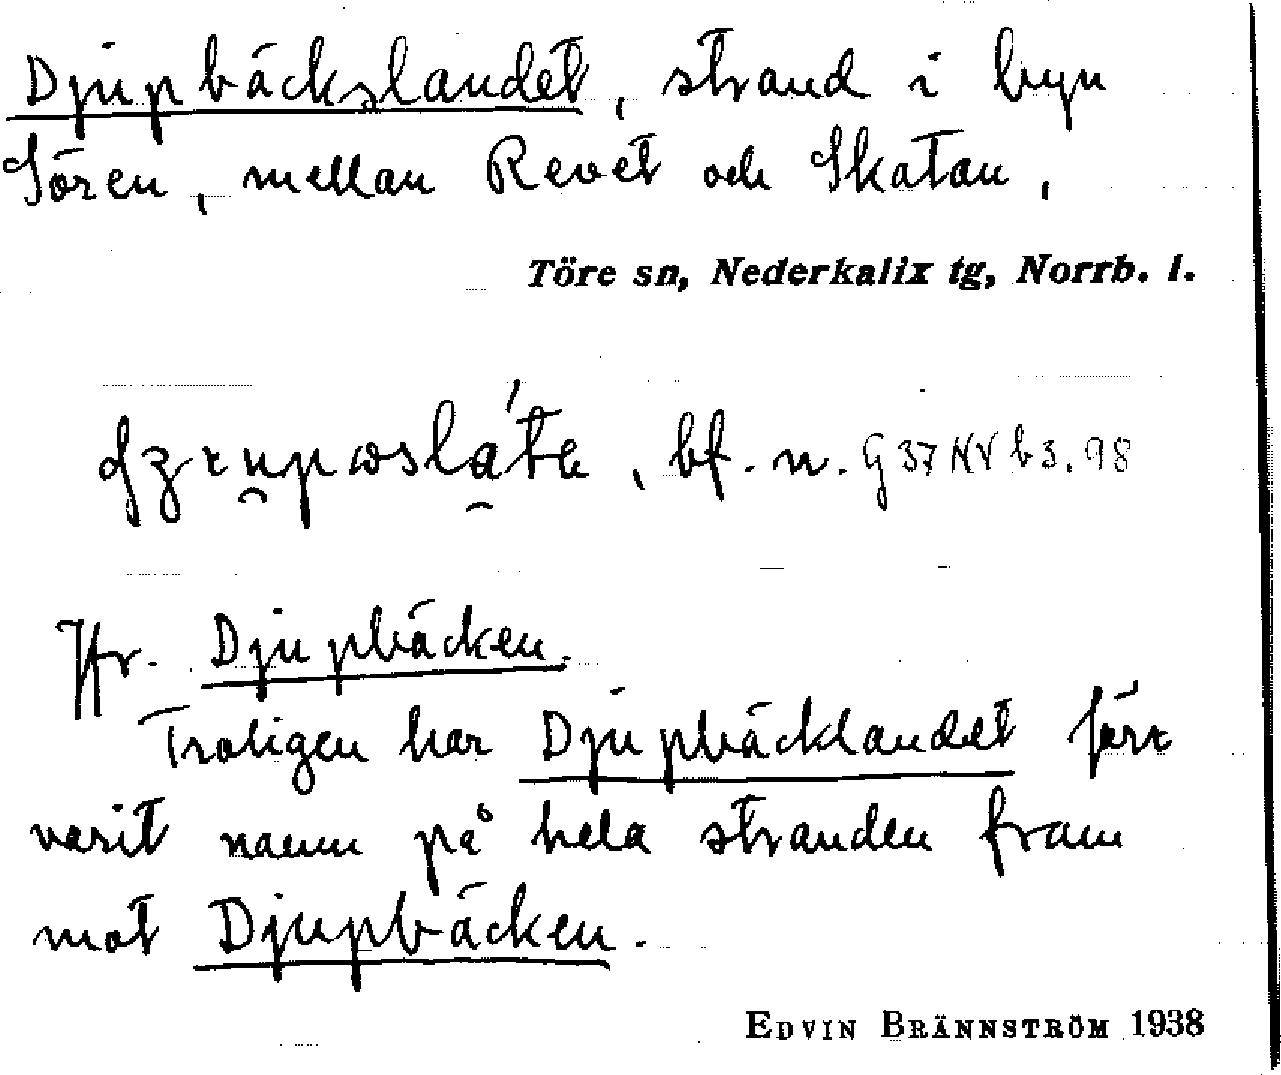 Djupbäckslandet, strand i byn
Sören, mellan Revet och Skatan,
Töre sn, Nederkalix tg, Norrb. l.
bf. n. G 37 NV b 3. 98
Jfr. Djupbäcken.
Troligen har Djupbäcklandet förr
varit namn på hela stranden fram
mot Djupbäcken.
EDVIN BRÄNNSTRÖM 1938